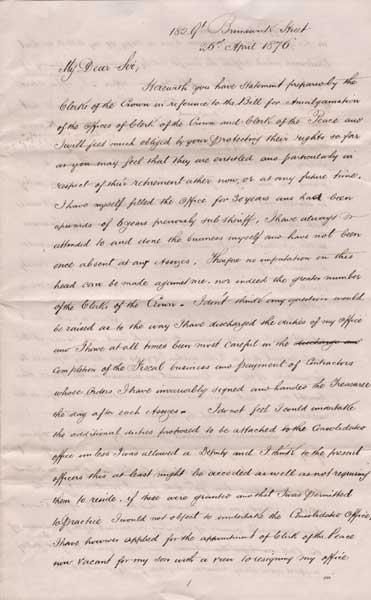 182 Gt Brunswick Street
26th April 1876
My Dear Sir,
Herewith you have Statement prepared by the
Clerks of the Crown in reference to the Bill for Amalgamation
of the Offices of Clerk of the Crown and Clerk of the Peace and
I will feel much obliged by your protecting their rights so far
as you may feel that they are entitled and particularly in
respect of their retirement either now, or at any future time.
I have myself filled the Office for 30 years and had been
upwards of 6 years previously sub sheriff, I have always
attended to and done the business myself and have not been
once absent at any Assizes. Therefore no imputation on this
head can be made against me, nor indeed the greater number
of the Clerks of the Crown. I dont think any question would
be raised as to the way I have discharged the duties of my office
and I have at all times been most careful in the discharge and
Completion of the Fiscal business and payment of Contractors
whose Orders I have invariably signed and handed the Treasurer
the day after each Assizes. I do not feel I could undertake
the additional duties proposed to be attached to the Consolidated
office unless I was allowed a Deputy and I think to the present
officers this at least might be acceded as well as not requiring
them to reside, if these were granted and that I was permitted
to Practice I would not object to undertake the Consolidated Office,
I have however applied for the appointment of Clerk of the Peace
now vacant for my son with a view to resigning my office